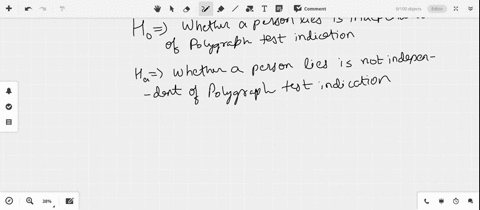 Comment
9/100 objects
Editor
H₀ => Whether a person lies is
of Polygraph test indication
Hₐ => Whether a person lies is not indepen-
-dent of Polygraph test indication
38%